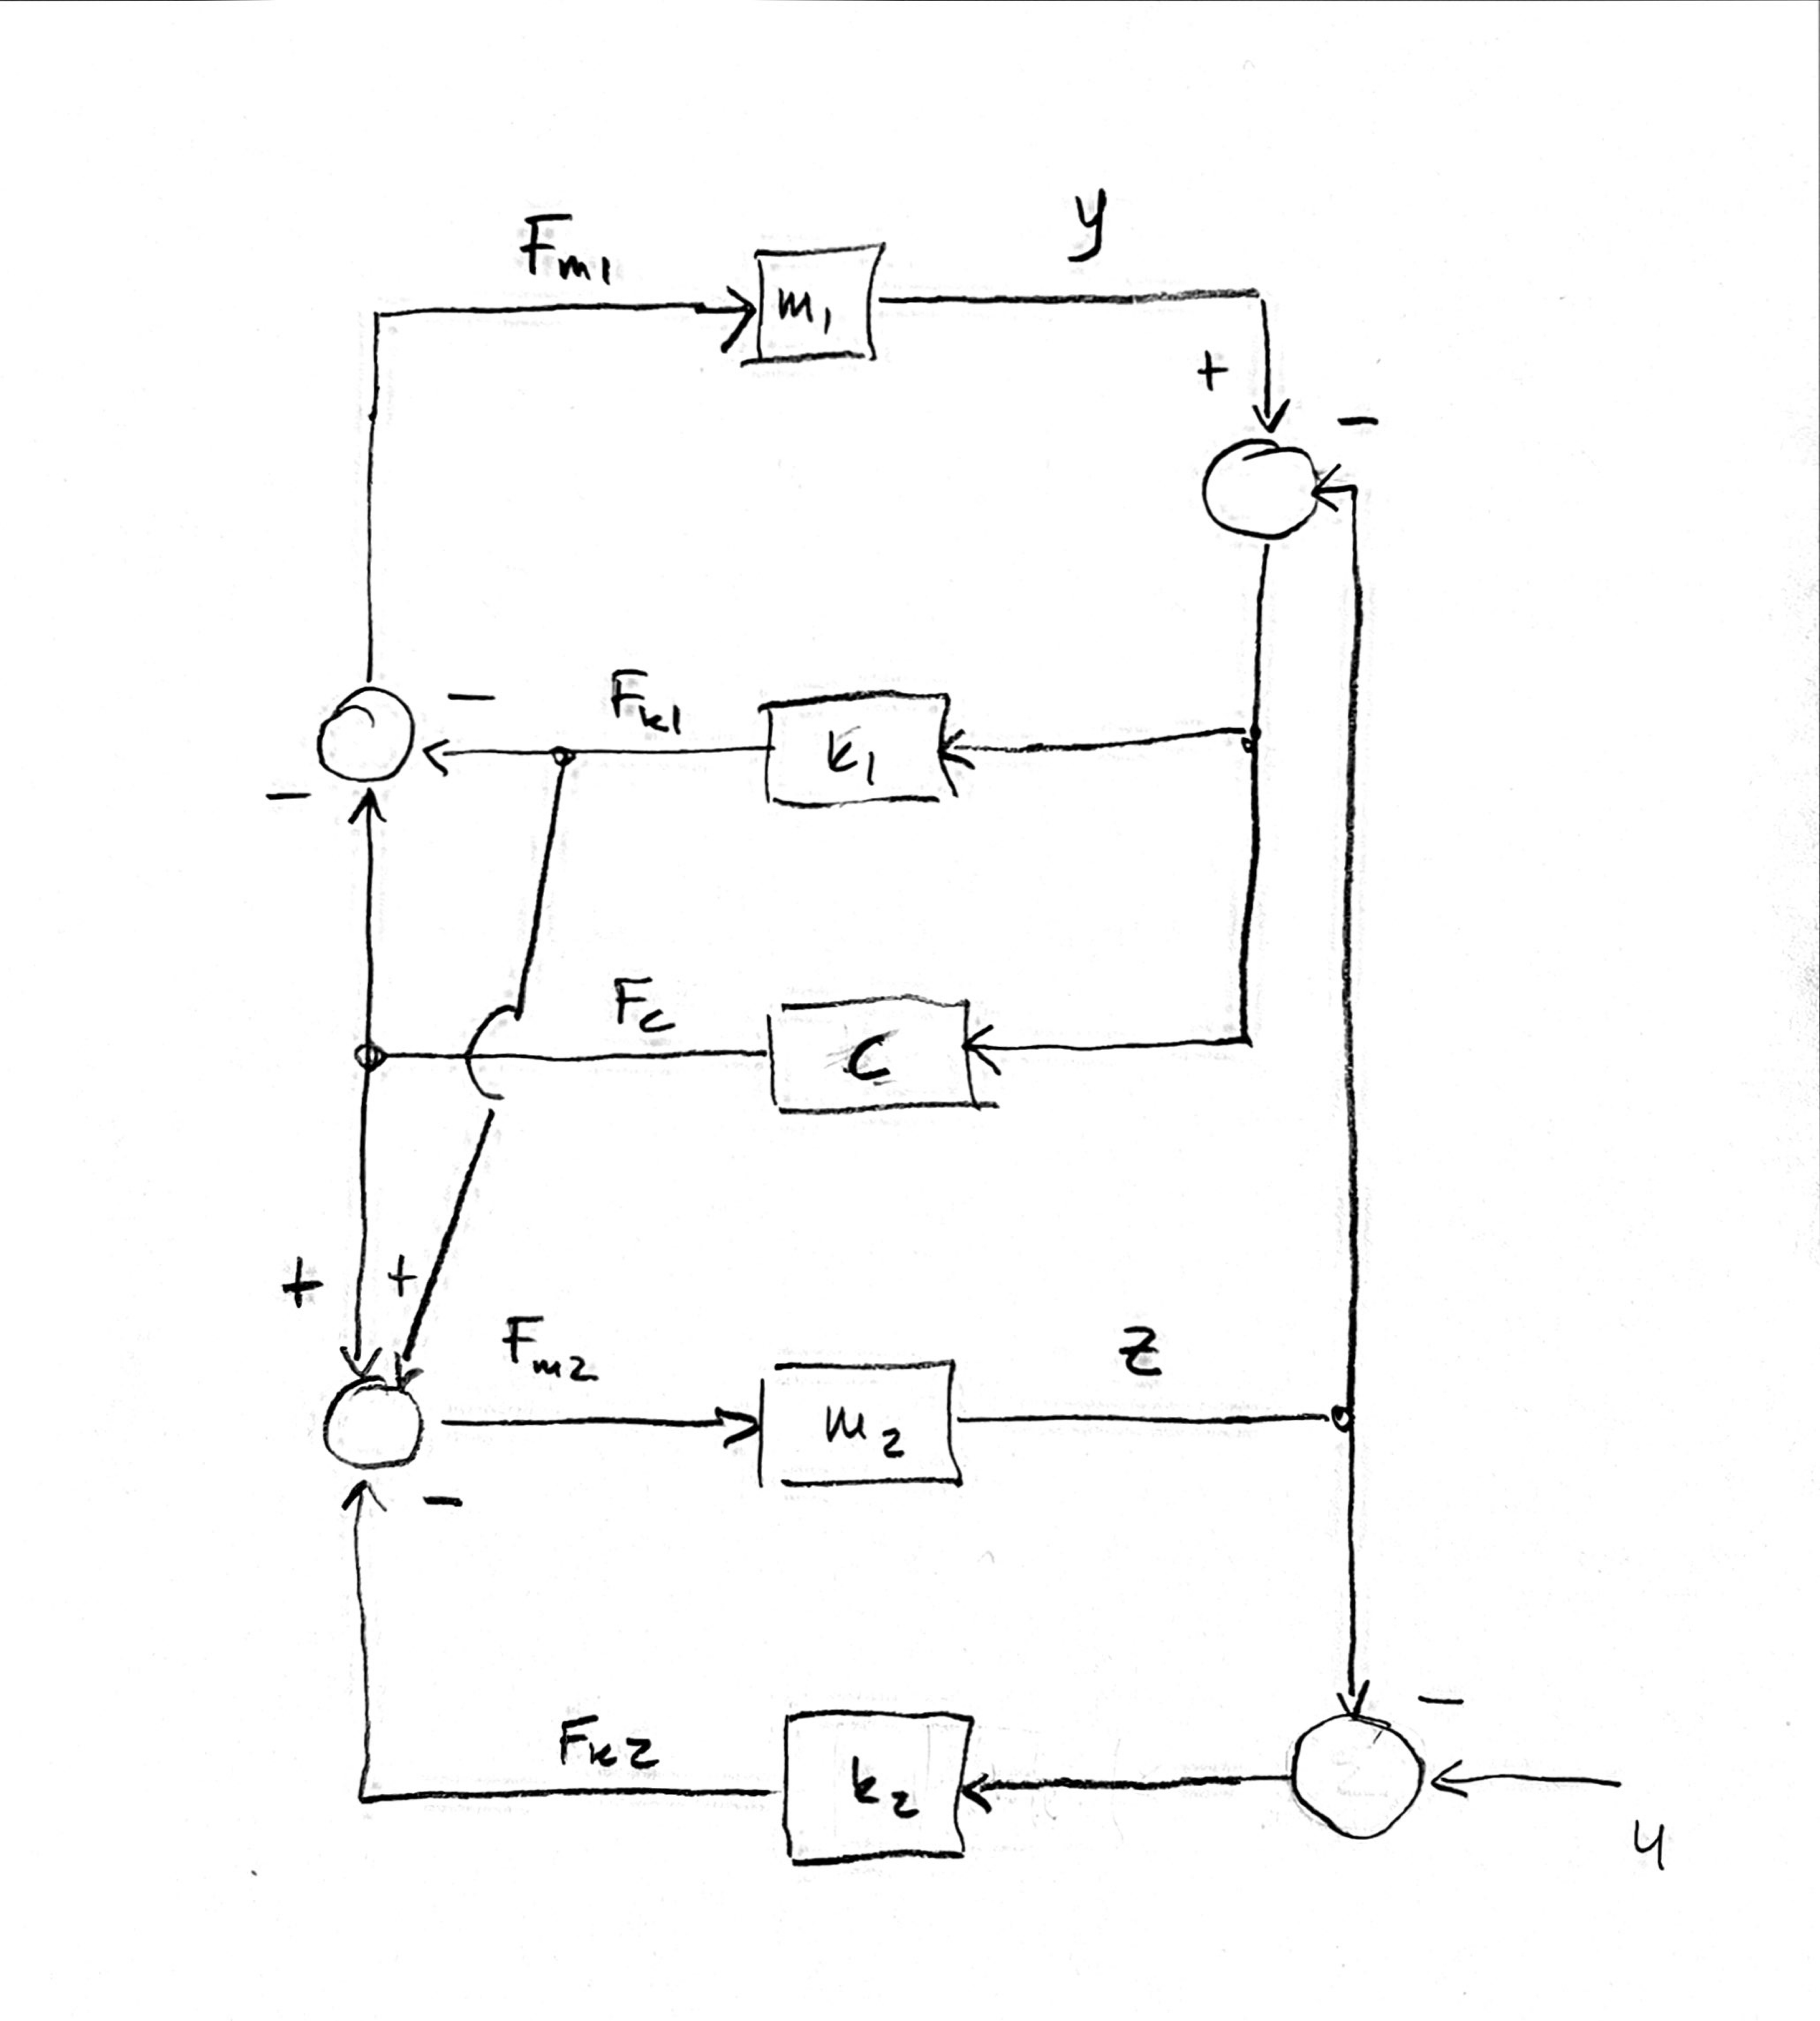 y
F_m1
m_1
+
−
F_k1
−
k_1
−
F_c
C
+
+
F_m2
z
m_2
−
−
F_k2
k_2
u